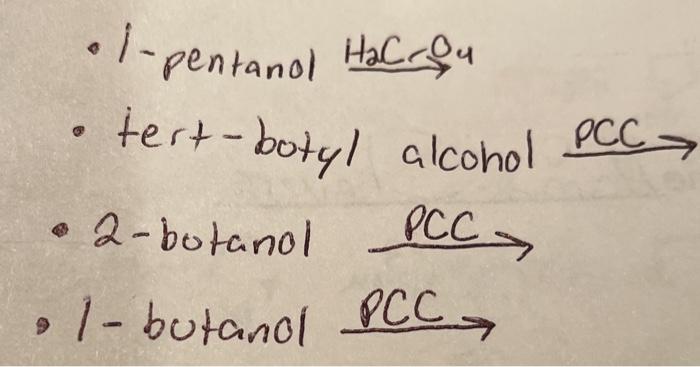 • 1-pentanol H2CrO4
• tert-botyl alcohol PCC
• 2-botanol PCC
• 1-botanol PCC